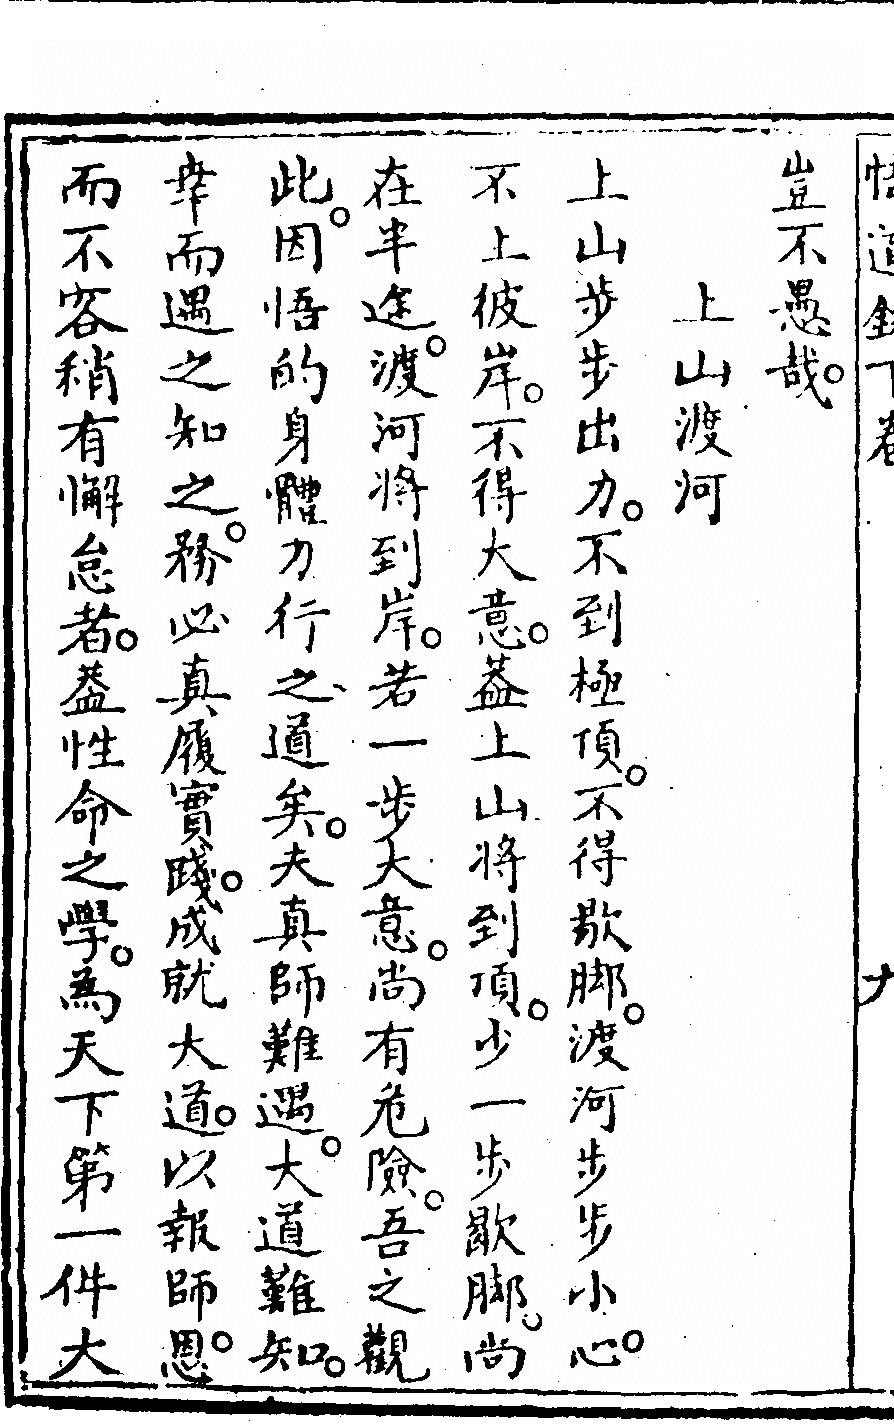 悟道錄下卷
豈不愚哉。
上山渡河
上山步步出力。不到極頂。不得歇脚。渡河步步小心。
不上彼岸。不得大意。葢上山將到頂。少一步歇脚。尚
在半途。渡河將到岸。若一步大意。尚有危險。吾之觀
此。因悟的身體力行之道矣。夫真師難遇。大道難知。
幸而遇之知之。務必真履實踐。成就大道。以報師恩。
而不容稍有懈怠者。葢性命之學。為天下第一件大